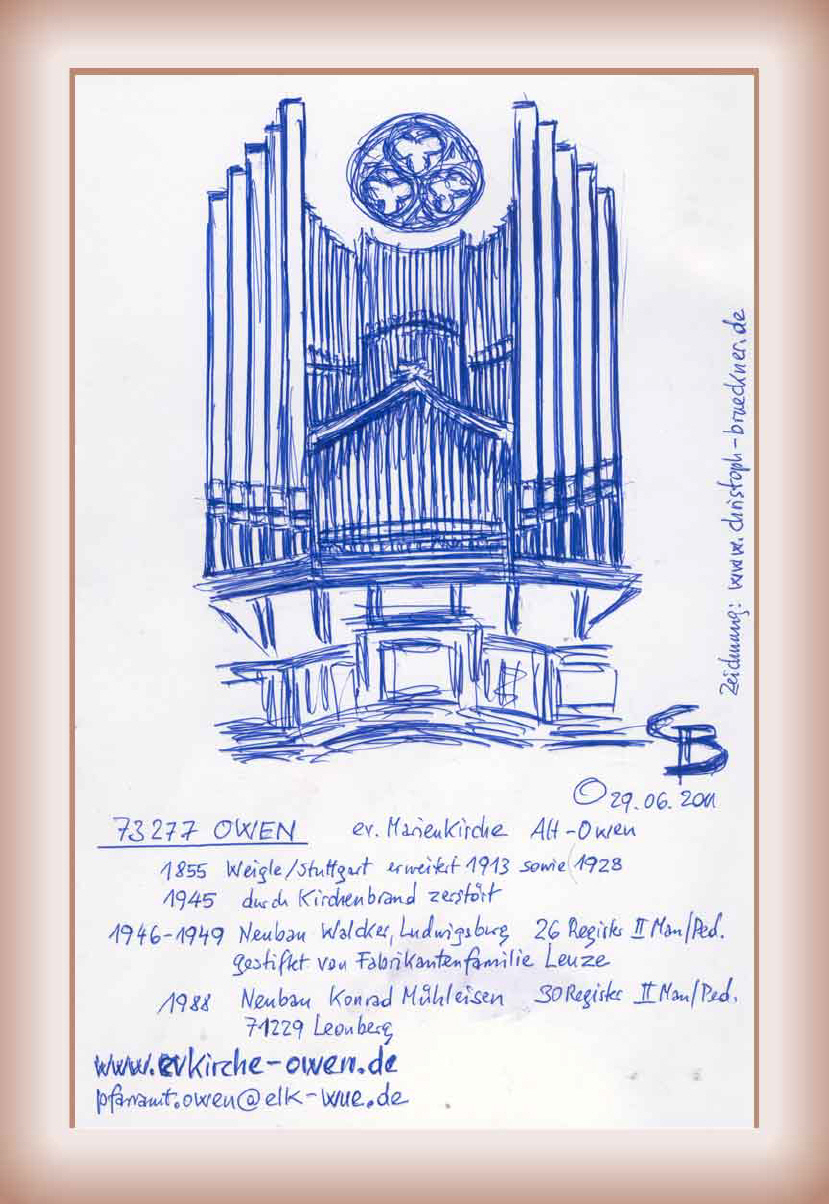 Zeichnung: www.christoph-brueckner.de
CB
© 29.06.2011
73277 OWEN ev. Marienkirche Alt-Owen
1855 Weigle/Stuttgart erweitert 1913 sowie 1928
1945 durch Kirchenbrand zerstört
1946-1949 Neubau Walcker, Ludwigsburg 26 Register II Man/Ped.
gestiftet von Fabrikantenfamilie Leuze
1988 Neubau Konrad Mühleisen 30 Register II Man/Ped.
71229 Leonberg
www.evkirche-owen.de
pfarramt.owen@elk-wue.de